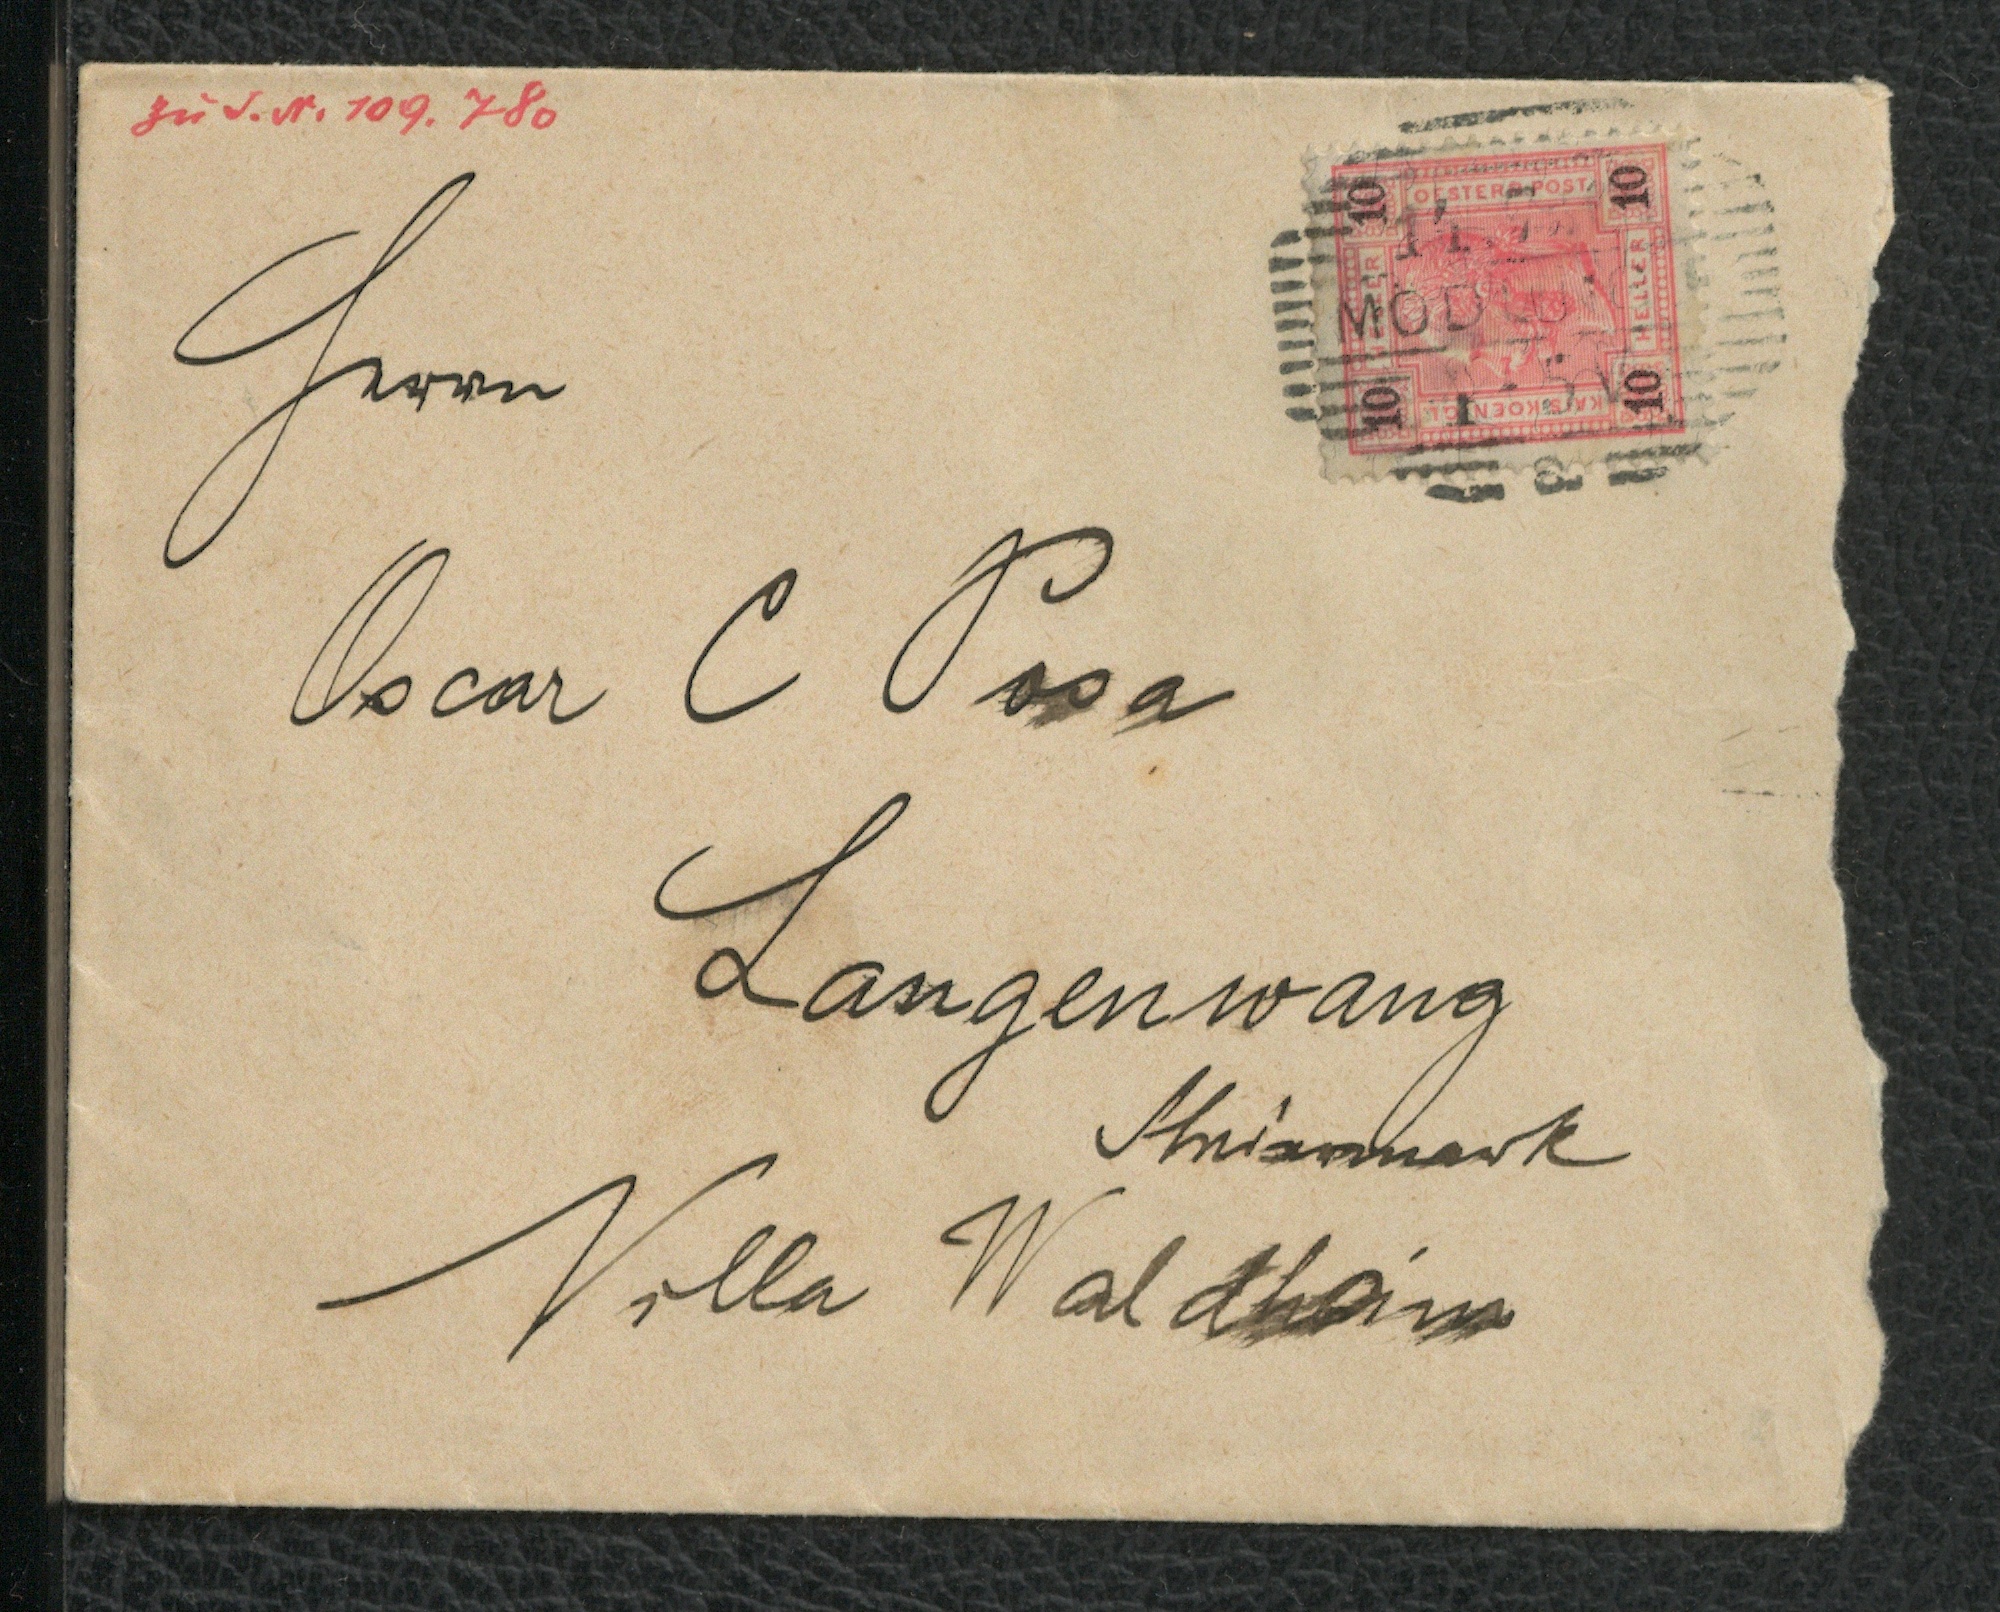 zu I.N. 109.780
10 OESTERR. POST 10
HELLER
HELLER
10 KAIS. KOENIGL. 10
MÖDLING
Herrn
Oscar C Posa
Langenwang
Steiermark
Villa Waldheim